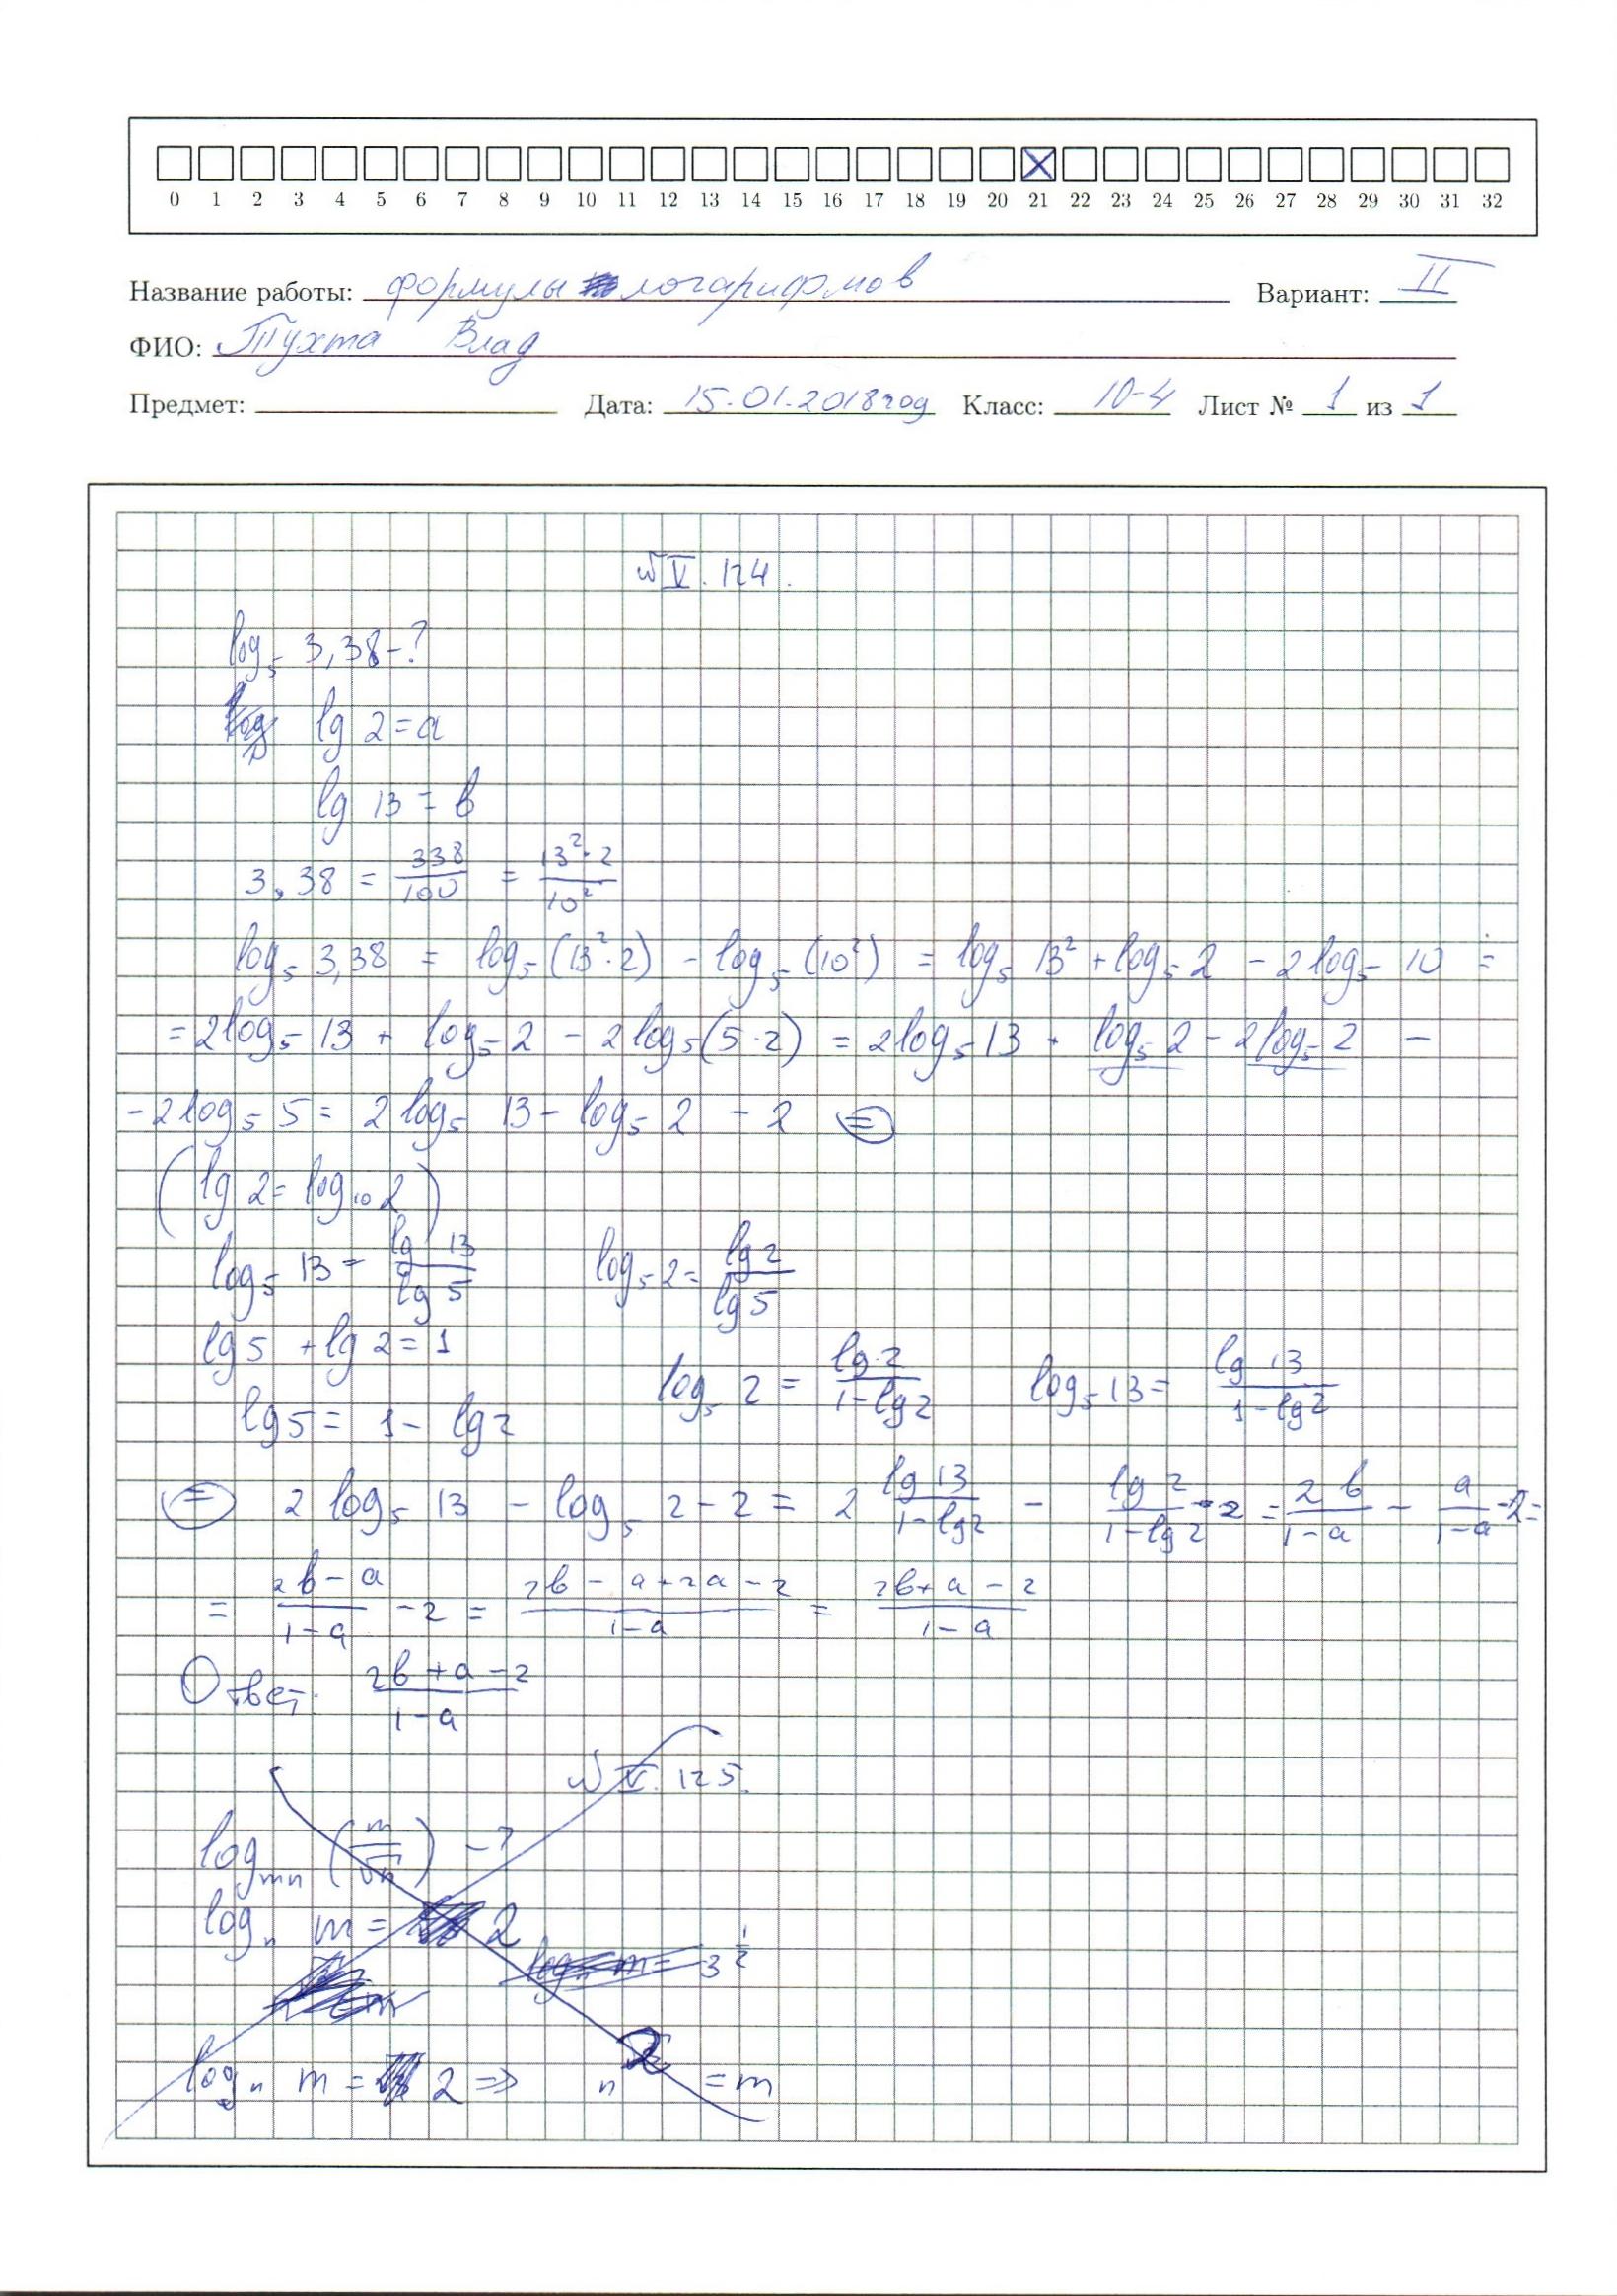 0 1 2 3 4 5 6 7 8 9 10 11 12 13 14 15 16 17 18 19 20 21 22 23 24 25 26 27 28 29 30 31 32
Название работы: формулы логарифмов Вариант: II
ФИО: Тухта Влад
Предмет: Дата: 15.01.2018 год Класс: 10-4 Лист № 1 из 1
№ V. 124.
log₅ 3,38 - ?
lg 2 = a
lg 13 = b
3,38 = 338/100 = (13²·2)/10²
log₅ 3,38 = log₅ (13²·2) - log₅ (10²) = log₅ 13² + log₅ 2 - 2 log₅ 10 =
= 2 log₅ 13 + log₅ 2 - 2 log₅ (5·2) = 2 log₅ 13 + log₅ 2 - 2 log₅ 2 -
- 2 log₅ 5 = 2 log₅ 13 - log₅ 2 - 2 =
(lg 2 = log₁₀ 2)
log₅ 13 = lg 13/lg 5 log₅ 2 = lg 2/lg 5
lg 5 + lg 2 = 1
lg 5 = 1 - lg 2 log₅ 2 = lg 2/(1 - lg 2) log₅ 13 = lg 13/(1 - lg 2)
= 2 log₅ 13 - log₅ 2 - 2 = 2 lg 13/(1 - lg 2) - lg 2/(1 - lg 2) - 2 = 2b/(1 - a) - a/(1 - a) - 2 =
= (2b - a)/(1 - a) - 2 = (2b - a + 2a - 2)/(1 - a) = (2b + a - 2)/(1 - a)
Ответ: (2b + a - 2)/(1 - a)
№ V. 125.
logₘₙ (m/√n) - ?
logₙ m = 2
logₙ m = 3^(1/2)
logₙ m = 2 => n² = m